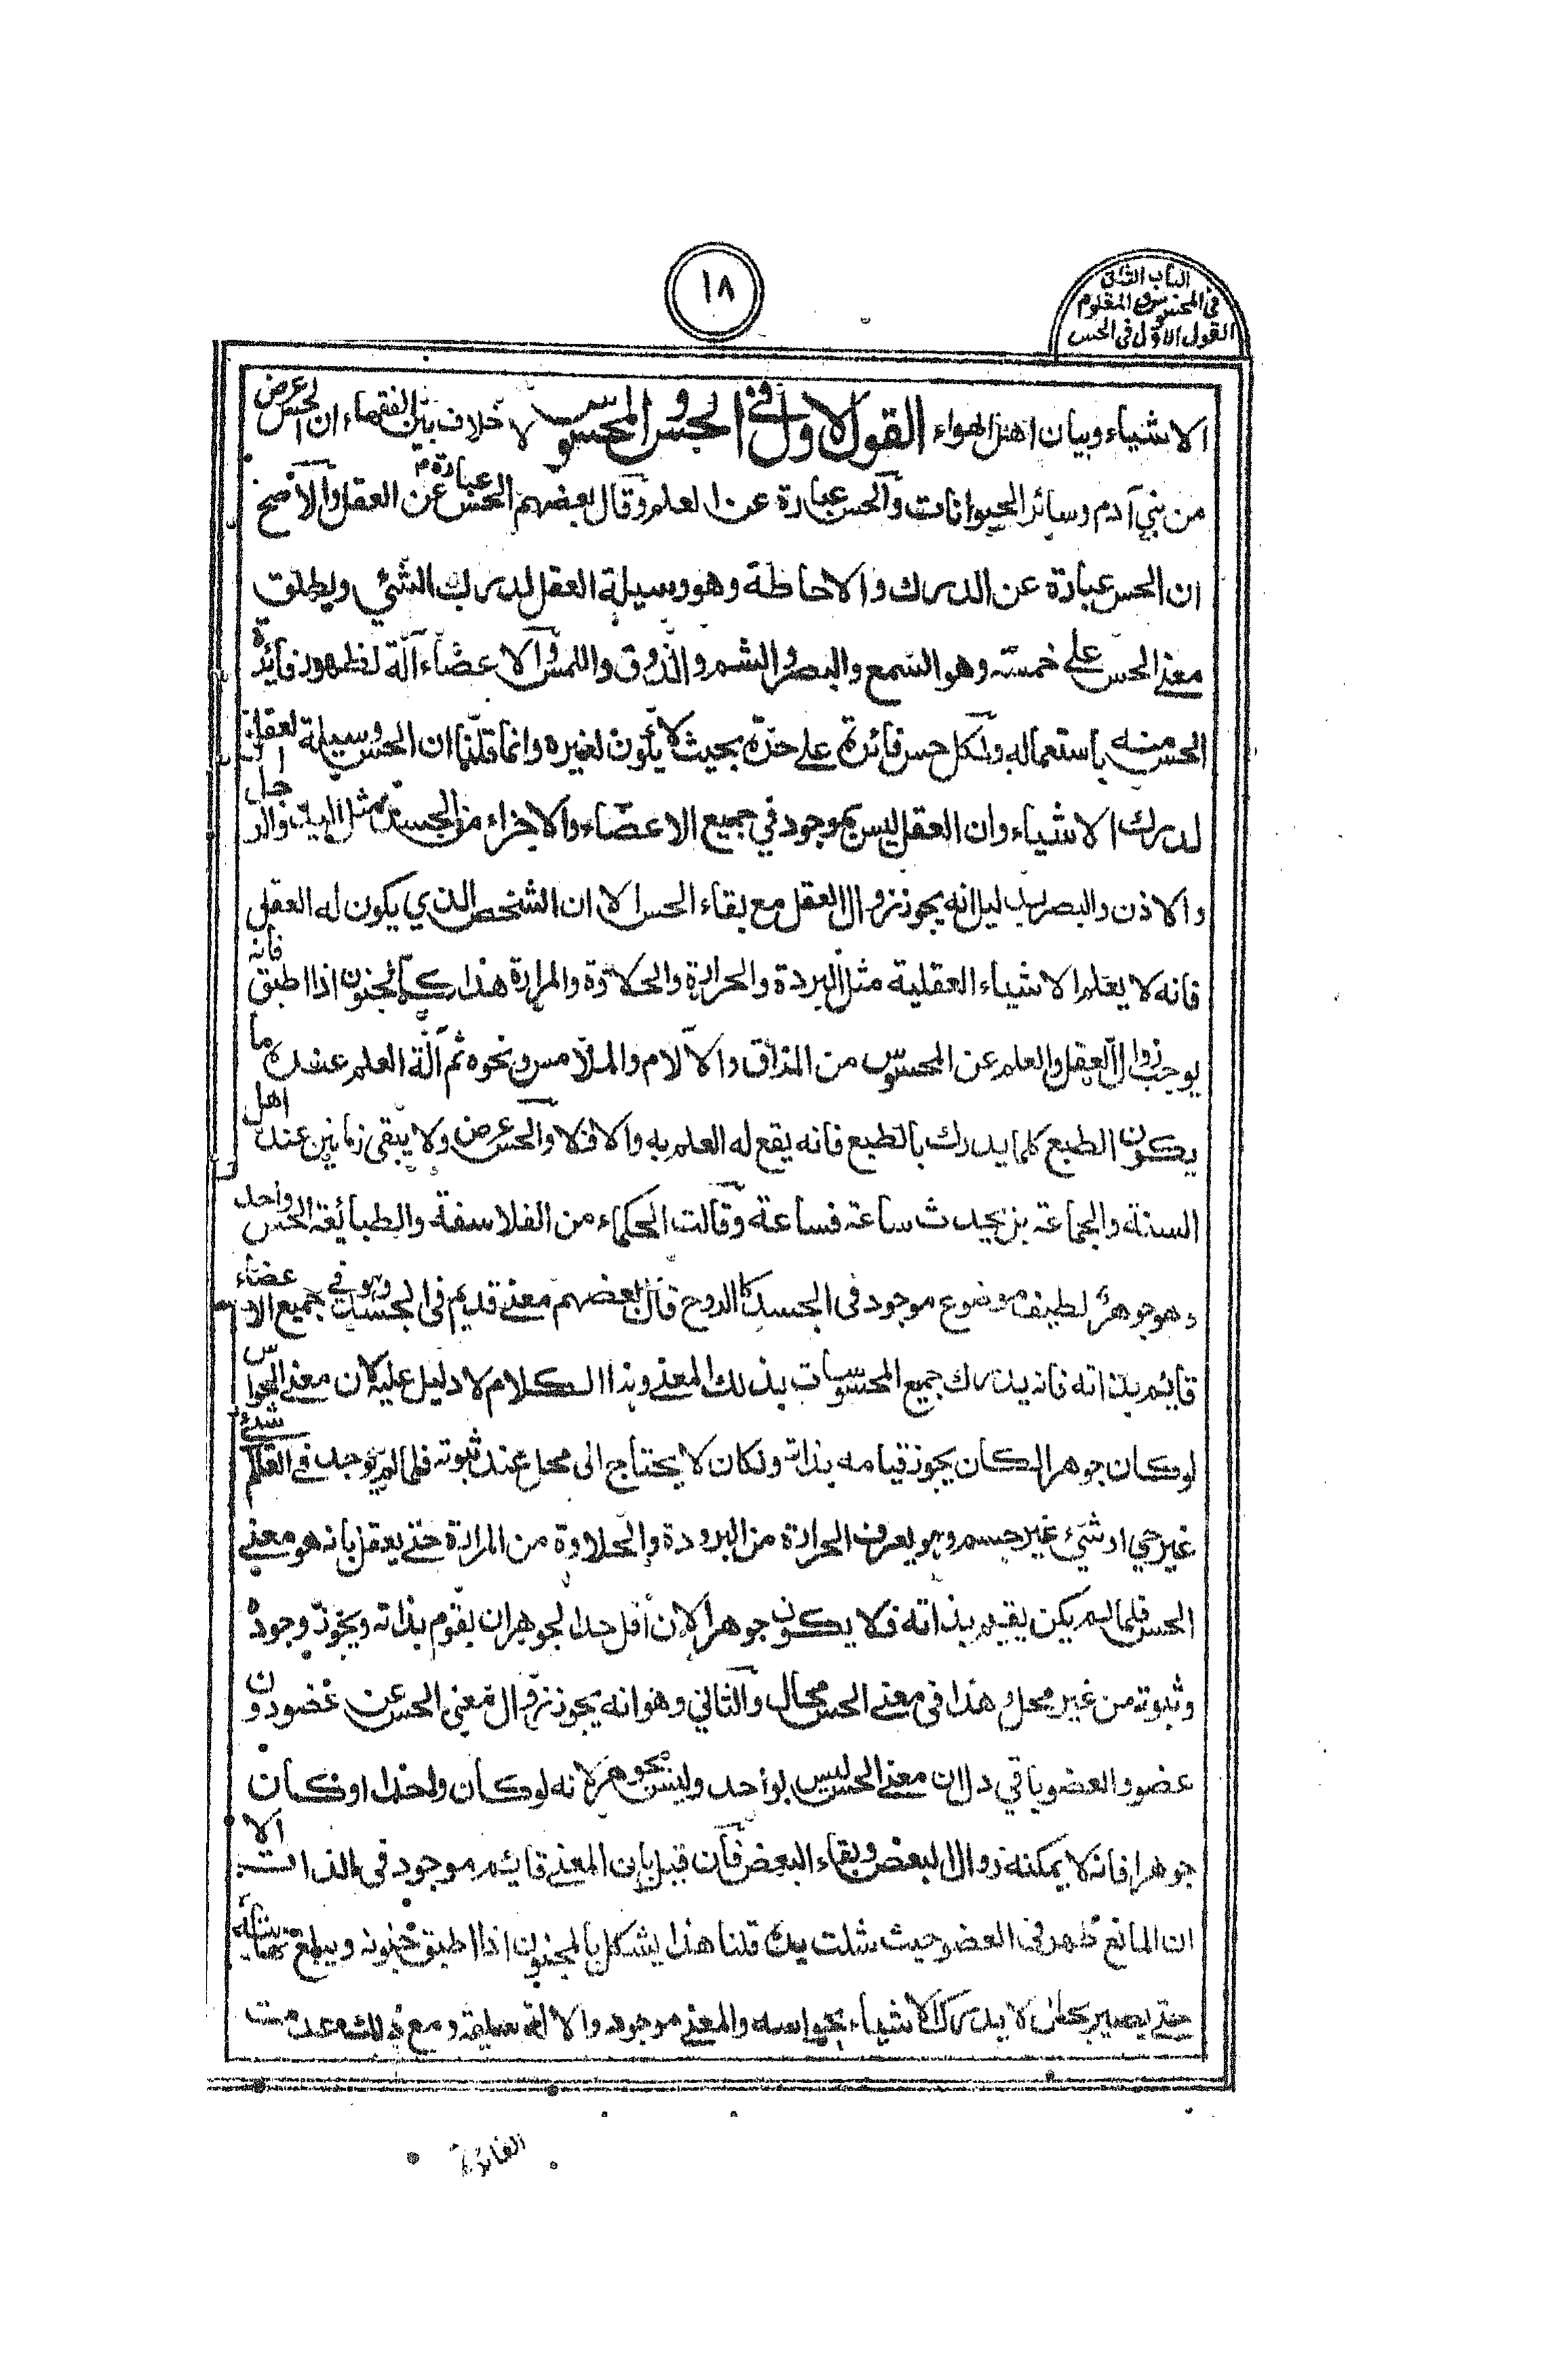 ١٨
الباب الثانى
فى المحسوس و المعلوم
القول الاوّل فى الحس
الاشياء وبيان اهل الهواء القول الاول فى الحس و المحسوس لا خلاف بين الفقهاء ان الحس عرض
من بني آدم وسائر الحيوانات والحس عبارة عن العلم وقال بعضهم الحس عبارة عن العقل والاصح
ان الحس عبارة عن الدرك والاحاطة وهو وسيلة العقل لدرك الشئي ويطلق
معنے الحس علے خمسة وهو السمع والبصر والشم والذوق واللمس والاعضاء آلة لظهور فائدة
الحس منه باستعماله ولكل حس فائدة علے حدة بحيث لا يكون لغيره وانما قلنا ان الحس وسيلة العقل
لدرك الاشياء وان العقل ليس بموجود في جميع الاعضاء والاجزاء من الجسد مثل اليد والرجل
والاذن والبصر بدليل انه يجوز زوال العقل مع بقاء الحس الا ان الشخص الذي يكون له العقل
فانه لا يعلم الاشياء العقلية مثل البردة والحرارة والحلاوة والمرارة هذا كالمجنون اذا اطبق فانه
يوجب زوال العقل والعلم عن المحسوس من المذاق والآلام والملامس ونحوه ثم آلة العلم عنده ما
يكون الطبع كلما يدرك بالطبع فانه يقع له العلم به والا فلا والحس عرض ولا يبقى زمانين عند اهل
السنة والجماعة بل يحدث ساعة فساعة وقالت الحكماء من الفلاسفة والطبائعة الحس واحد
وهو جوهر لطيف موضوع موجود فى الجسد كالروح قال بعضهم معنے قديم فى الجسد وہو فے جميع الاعضاء
قايم بذاته فانه يدرك جميع المحسوسات بذلك المعنے وہذا الكلام لا دليل عليه لان معنے الحواس
لو كان جوهرا لكان يجوز قيامه بذاته ولكان لا يحتاج الى محل عند ثبوته فلما لم يوجد فے العلم شئ
غير حي او شئ غير جسم وہو يعرف الحرارة من البرودة والحلاوة من المرارة حتے يعقل بانه هو معنے
الحس فلما لم يكن يقيم بذاته فلا يكون جوهرا لان أقل حد الجوهر ان يقوم بذاته ويجوز وجوده
وثبوته من غير محل و هذا فى معنے الحس محال والثاني وهو انه يجوز زوال معنى الحس عن عضو دون
عضو والعضو باقي دل ان معنے الحس ليس بواحد وليس بجوهر لانه لو كان واحدا او كان
جوهرا فانه لا يمكنه زوال البعض وبقاء البعض فان قيل بان المعنے قائم موجود فى الذات الا
ان المانع ظهر فى العضو حيث شلت يده قلنا هذا يشكل بالمجنون اذا اطبق جنونه ويبلغ
حتے يصير بحال لا يدرك الاشياء بحواسه والمعنے موجود والالة سليمة ومع ذلك عدمت
الفائدة